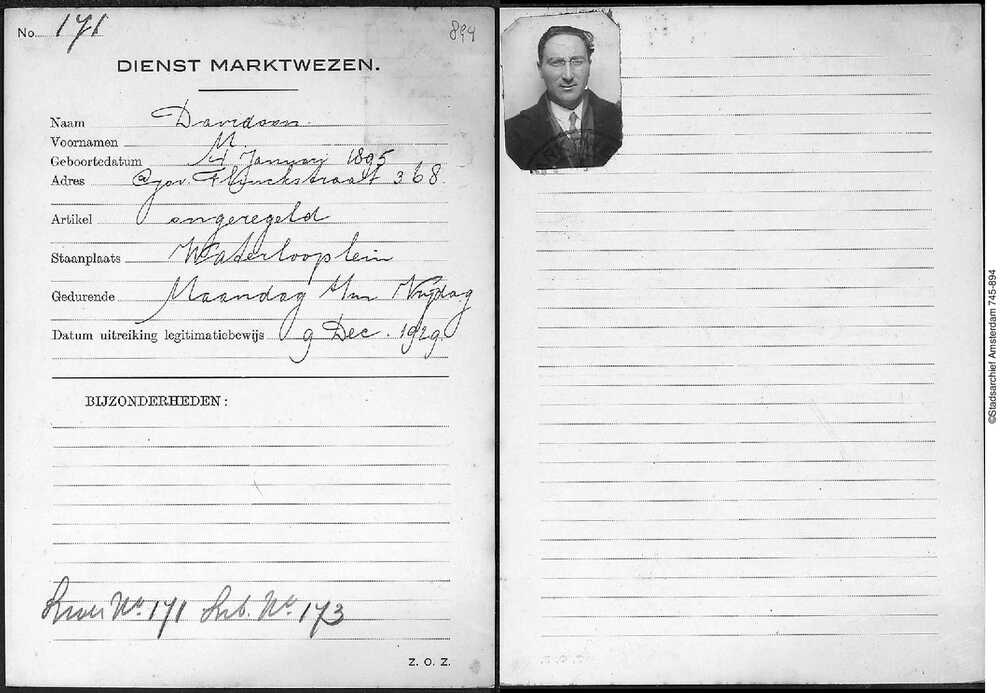 No. 171
894
DIENST MARKTWEZEN.
Naam Davidson
Voornamen M.
Geboortedatum 4 Januari 1895
Adres Gov. Flinckstraat 368
Artikel ongeregeld
Staanplaats Waterlooplein
Gedurende Maandag t/m Vrijdag
Datum uitreiking legitimatiebewijs 9 Dec. 1929
BIJZONDERHEDEN:
No. 171 No. 173
Z. O. Z.
©Stadsarchief Amsterdam 745-894